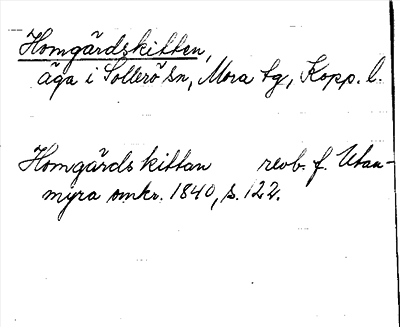 Homgårdskitten,
äga i Sollerö sn, Mora tg, Kopp. l.
Homgårdskittan revb. f. Utan-
myra omkr. 1840, s. 122.